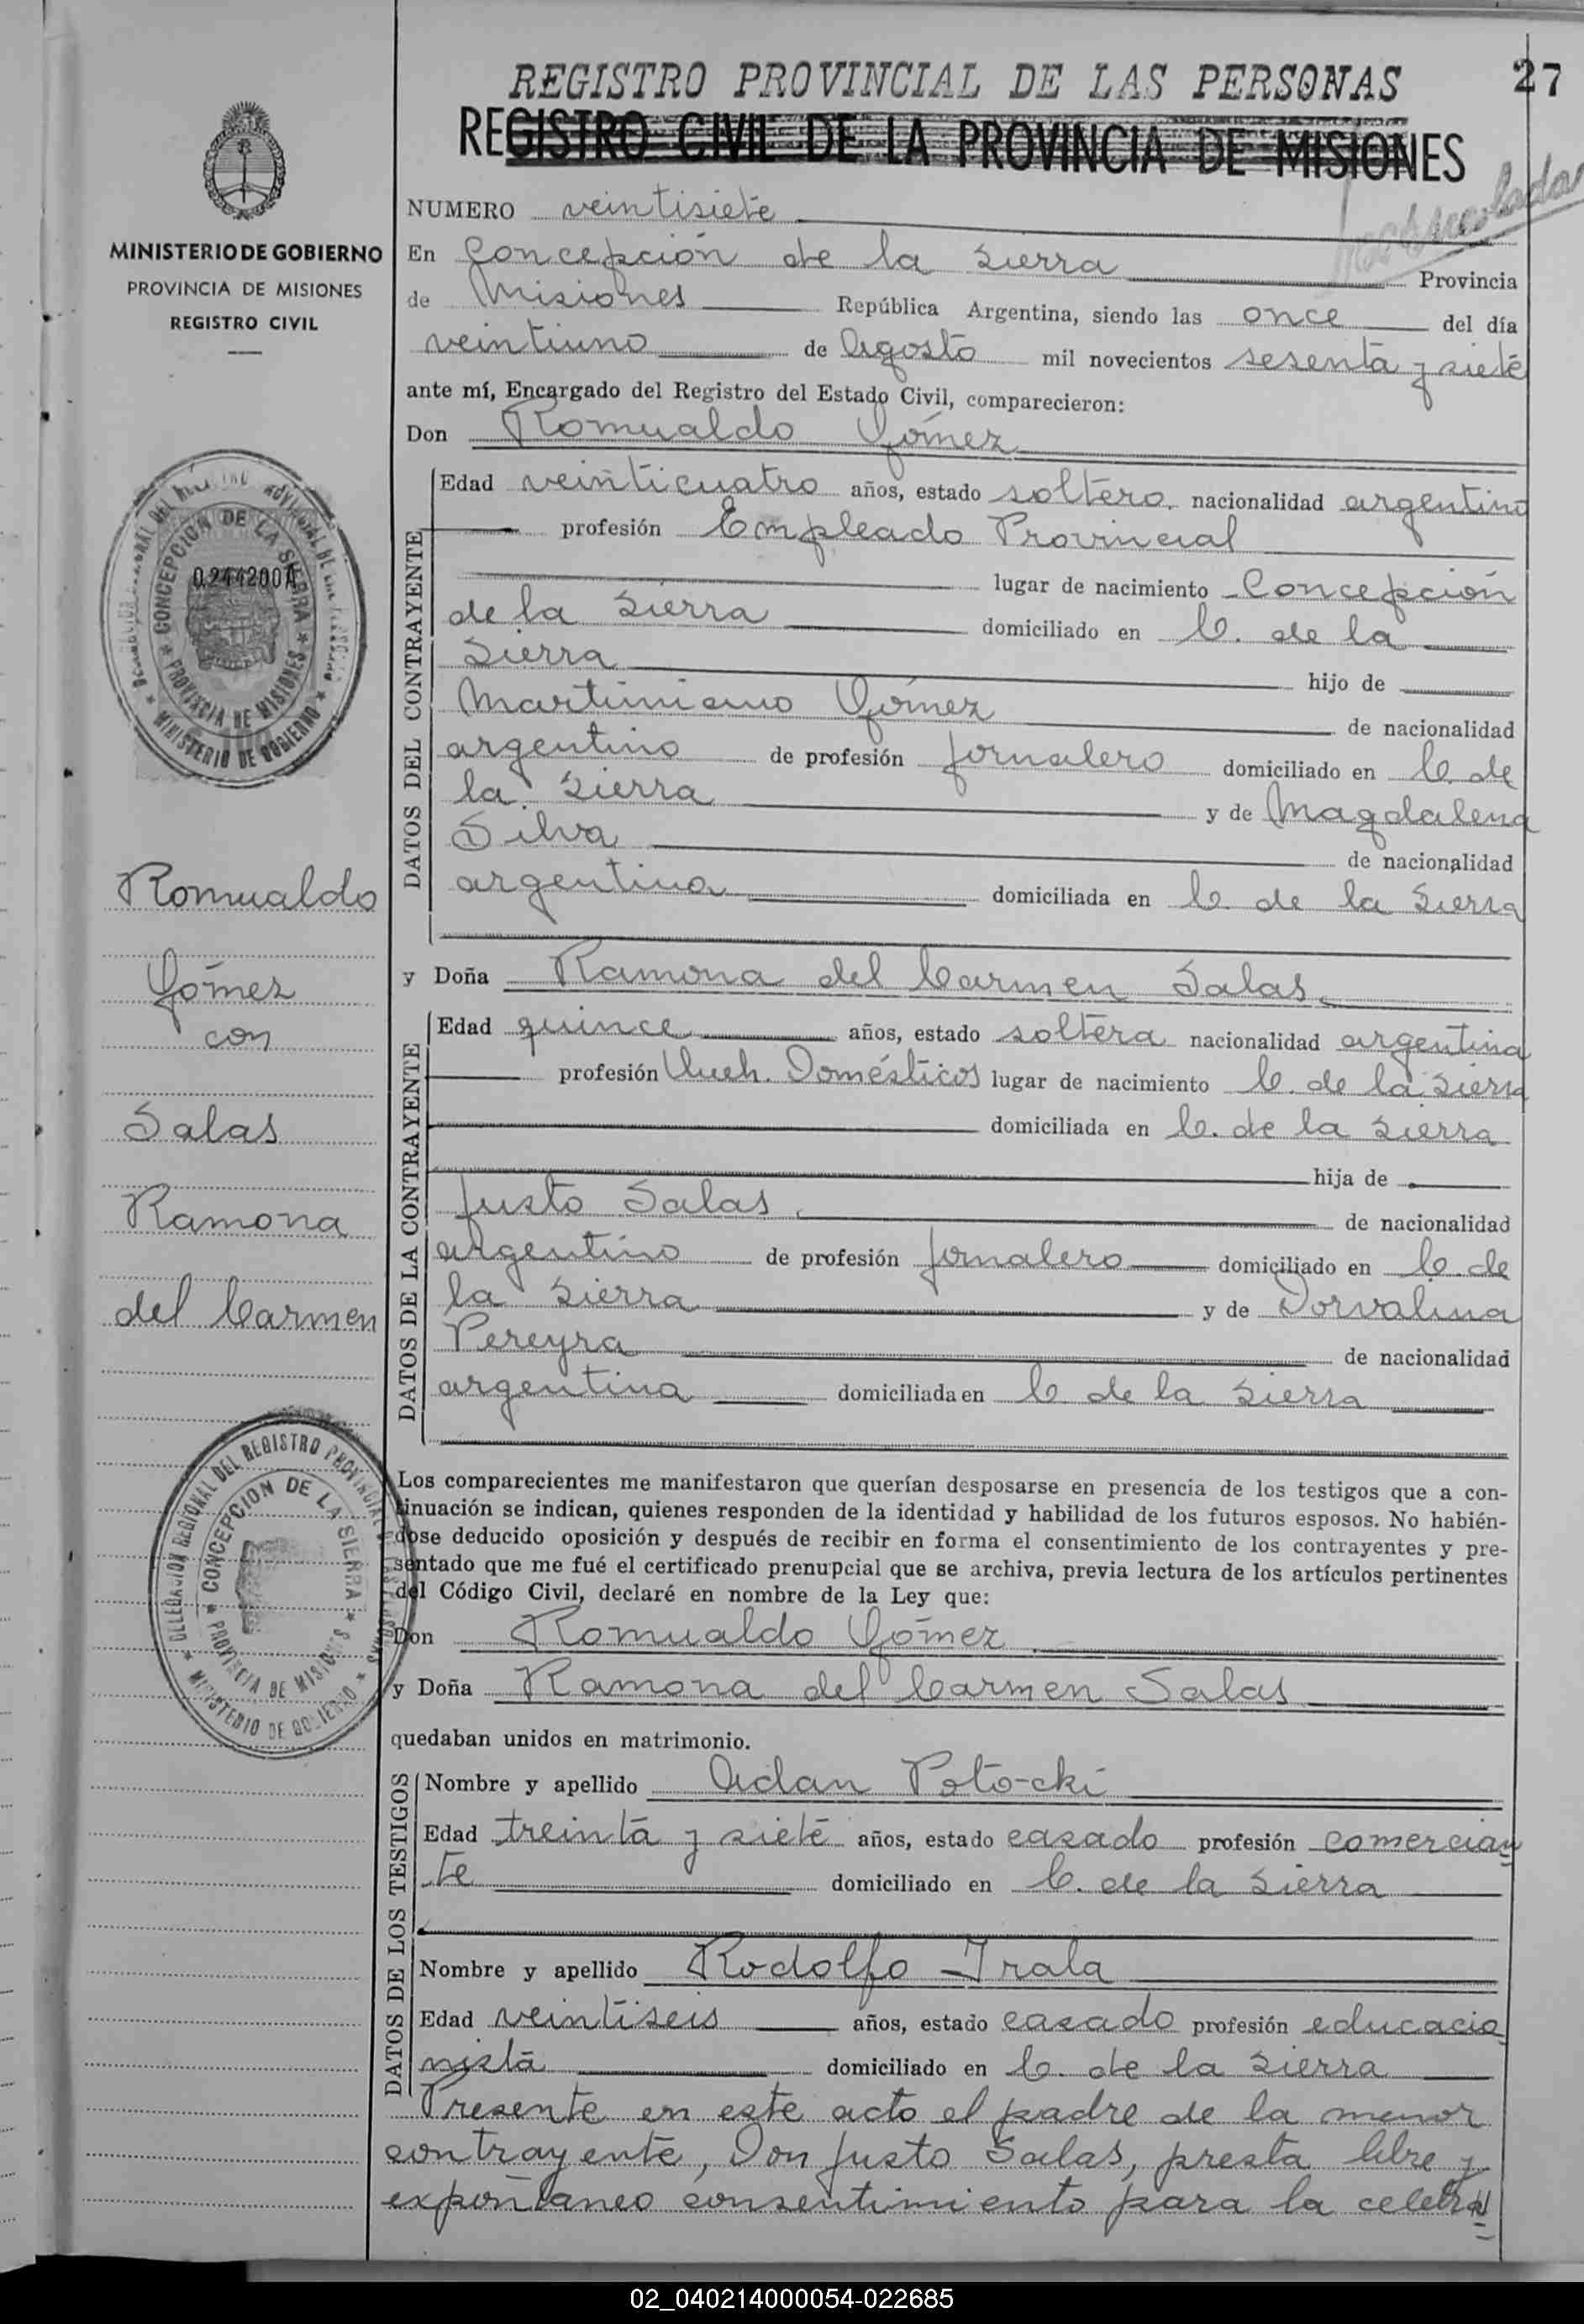 REGISTRO PROVINCIAL DE LAS PERSONAS
27
REGISTRO CIVIL DE LA PROVINCIA DE MISIONES
MINISTERIO DE GOBIERNO
PROVINCIA DE MISIONES
REGISTRO CIVIL
NUMERO veintisiete
En Concepción de la Sierra Provincia
de Misiones República Argentina, siendo las once del día
veintiuno de Agosto mil novecientos sesenta y siete
ante mí, Encargado del Registro del Estado Civil, comparecieron:
Don Romualdo Gómez
DATOS DEL CONTRAYENTE
Edad veinticuatro años, estado soltero, nacionalidad argentino
profesión Empleado Provincial
lugar de nacimiento Concepción
de la Sierra domiciliado en C. de la
Sierra hijo de
Martimiano Gómez de nacionalidad
argentino de profesión jornalero domiciliado en C. de
la Sierra y de Magdalena
Silva de nacionalidad
argentina domiciliada en C. de la Sierra
y Doña Ramona del Carmen Salas
DATOS DE LA CONTRAYENTE
Edad quince años, estado soltera nacionalidad argentina
profesión Queh. Domésticos lugar de nacimiento C. de la Sierra
domiciliada en C. de la Sierra
hija de
Justo Salas de nacionalidad
argentino de profesión jornalero domiciliado en C. de
la Sierra y de Dorvalina
Pereyra de nacionalidad
argentina domiciliada en C de la Sierra
Los comparecientes me manifestaron que querían desposarse en presencia de los testigos que a con-
tinuación se indican, quienes responden de la identidad y habilidad de los futuros esposos. No habién-
dose deducido oposición y después de recibir en forma el consentimiento de los contrayentes y pre-
sentado que me fué el certificado prenupcial que se archiva, previa lectura de los artículos pertinentes
del Código Civil, declaré en nombre de la Ley que:
Don Romualdo Gómez
y Doña Ramona del Carmen Salas
quedaban unidos en matrimonio.
DATOS DE LOS TESTIGOS
Nombre y apellido Adan Potocki
Edad treinta y siete años, estado casado profesión comercian
te domiciliado en C. de la Sierra
Nombre y apellido Rodolfo Irala
Edad veintiseis años, estado casado profesión educacio
nista domiciliado en C. de la Sierra
Presente en este acto el padre de la menor
contrayente, Don Justo Salas, presta libre y
expontaneo consentimiento para la celebra
CONCEPCION DE LA SIERRA
PROVINCIA DE MISIONES
MINISTERIO DE GOBIERNO
0244200A
Romualdo
Gómez
con
Salas
Ramona
del Carmen
DELEGACION REGIONAL DEL REGISTRO PROVINCIAL
CONCEPCION DE LA SIERRA
PROVINCIA DE MISIONES
MINISTERIO DE GOBIERNO
02_040214000054-022685